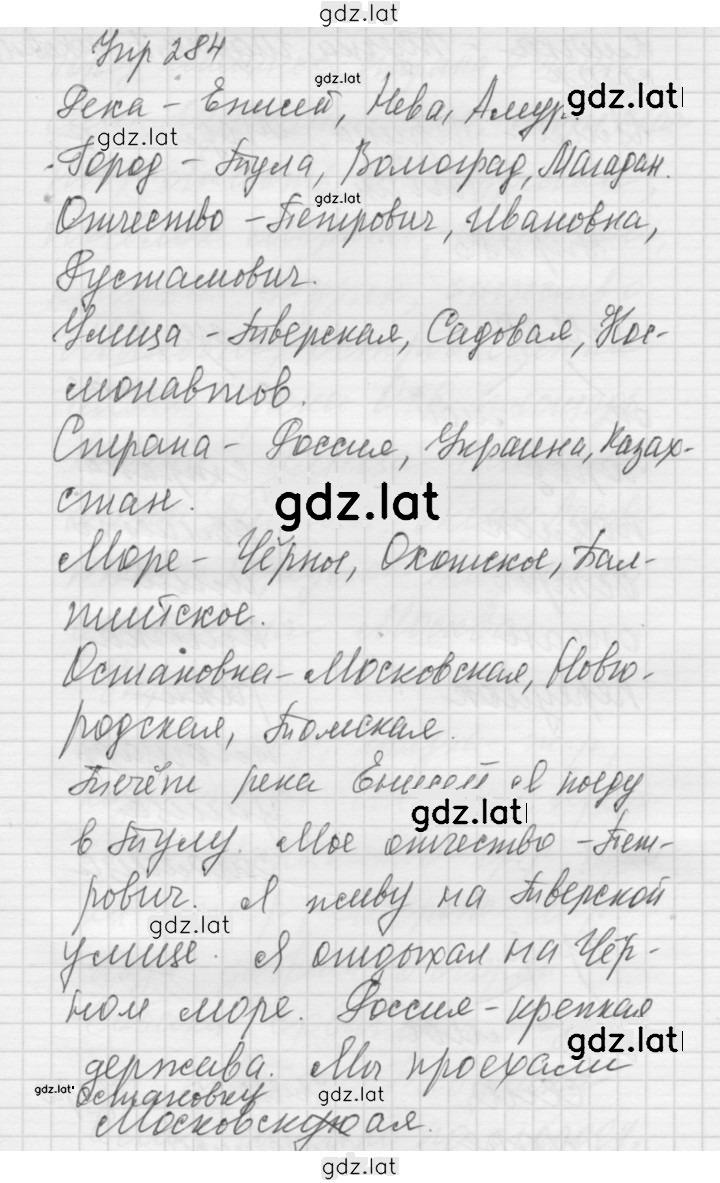 gdz.lat
Упр 284
gdz.lat
Река - Енисей, Нева, Амур.
gdz.lat
gdz.lat
Город - Тула, Волгоград, Магадан.
gdz.lat
Отчество - Петрович, Ивановна,
Рустамович.
Улица - Тверская, Садовая, Кос-
монавтов.
Страна - Россия, Украина, Казах-
стан.
gdz.lat
Море - Чёрное, Охотское, Бал-
тийское.
Остановка - Московская, Новго-
родская, Томская.
Течёт река Енисей. Я поеду
gdz.lat
в Тулу. Мое отчество - Пет-
рович. Я живу на Тверской
gdz.lat
улице. Я отдыхал на Чёр-
ном море. Россия - крепкая
gdz.lat
держава. Мы проехали
gdz.lat
остановку
gdz.lat
Московская.
gdz.lat